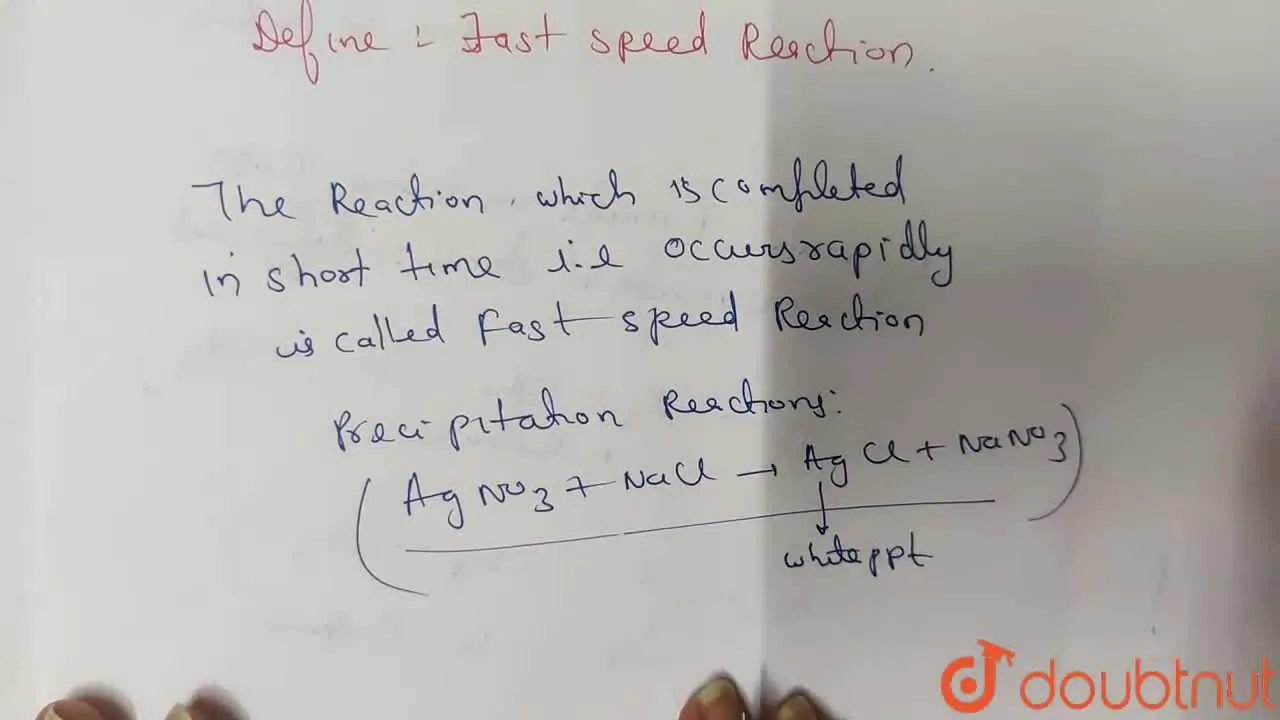 Define :- Fast speed Reaction.
The Reaction which is completed
in short time i.e occurs rapidly
is called Fast speed Reaction
Precipitation Reactions:
(AgNO3 + NaCl → AgCl + NaNO3)
↓
white ppt
doubtnut